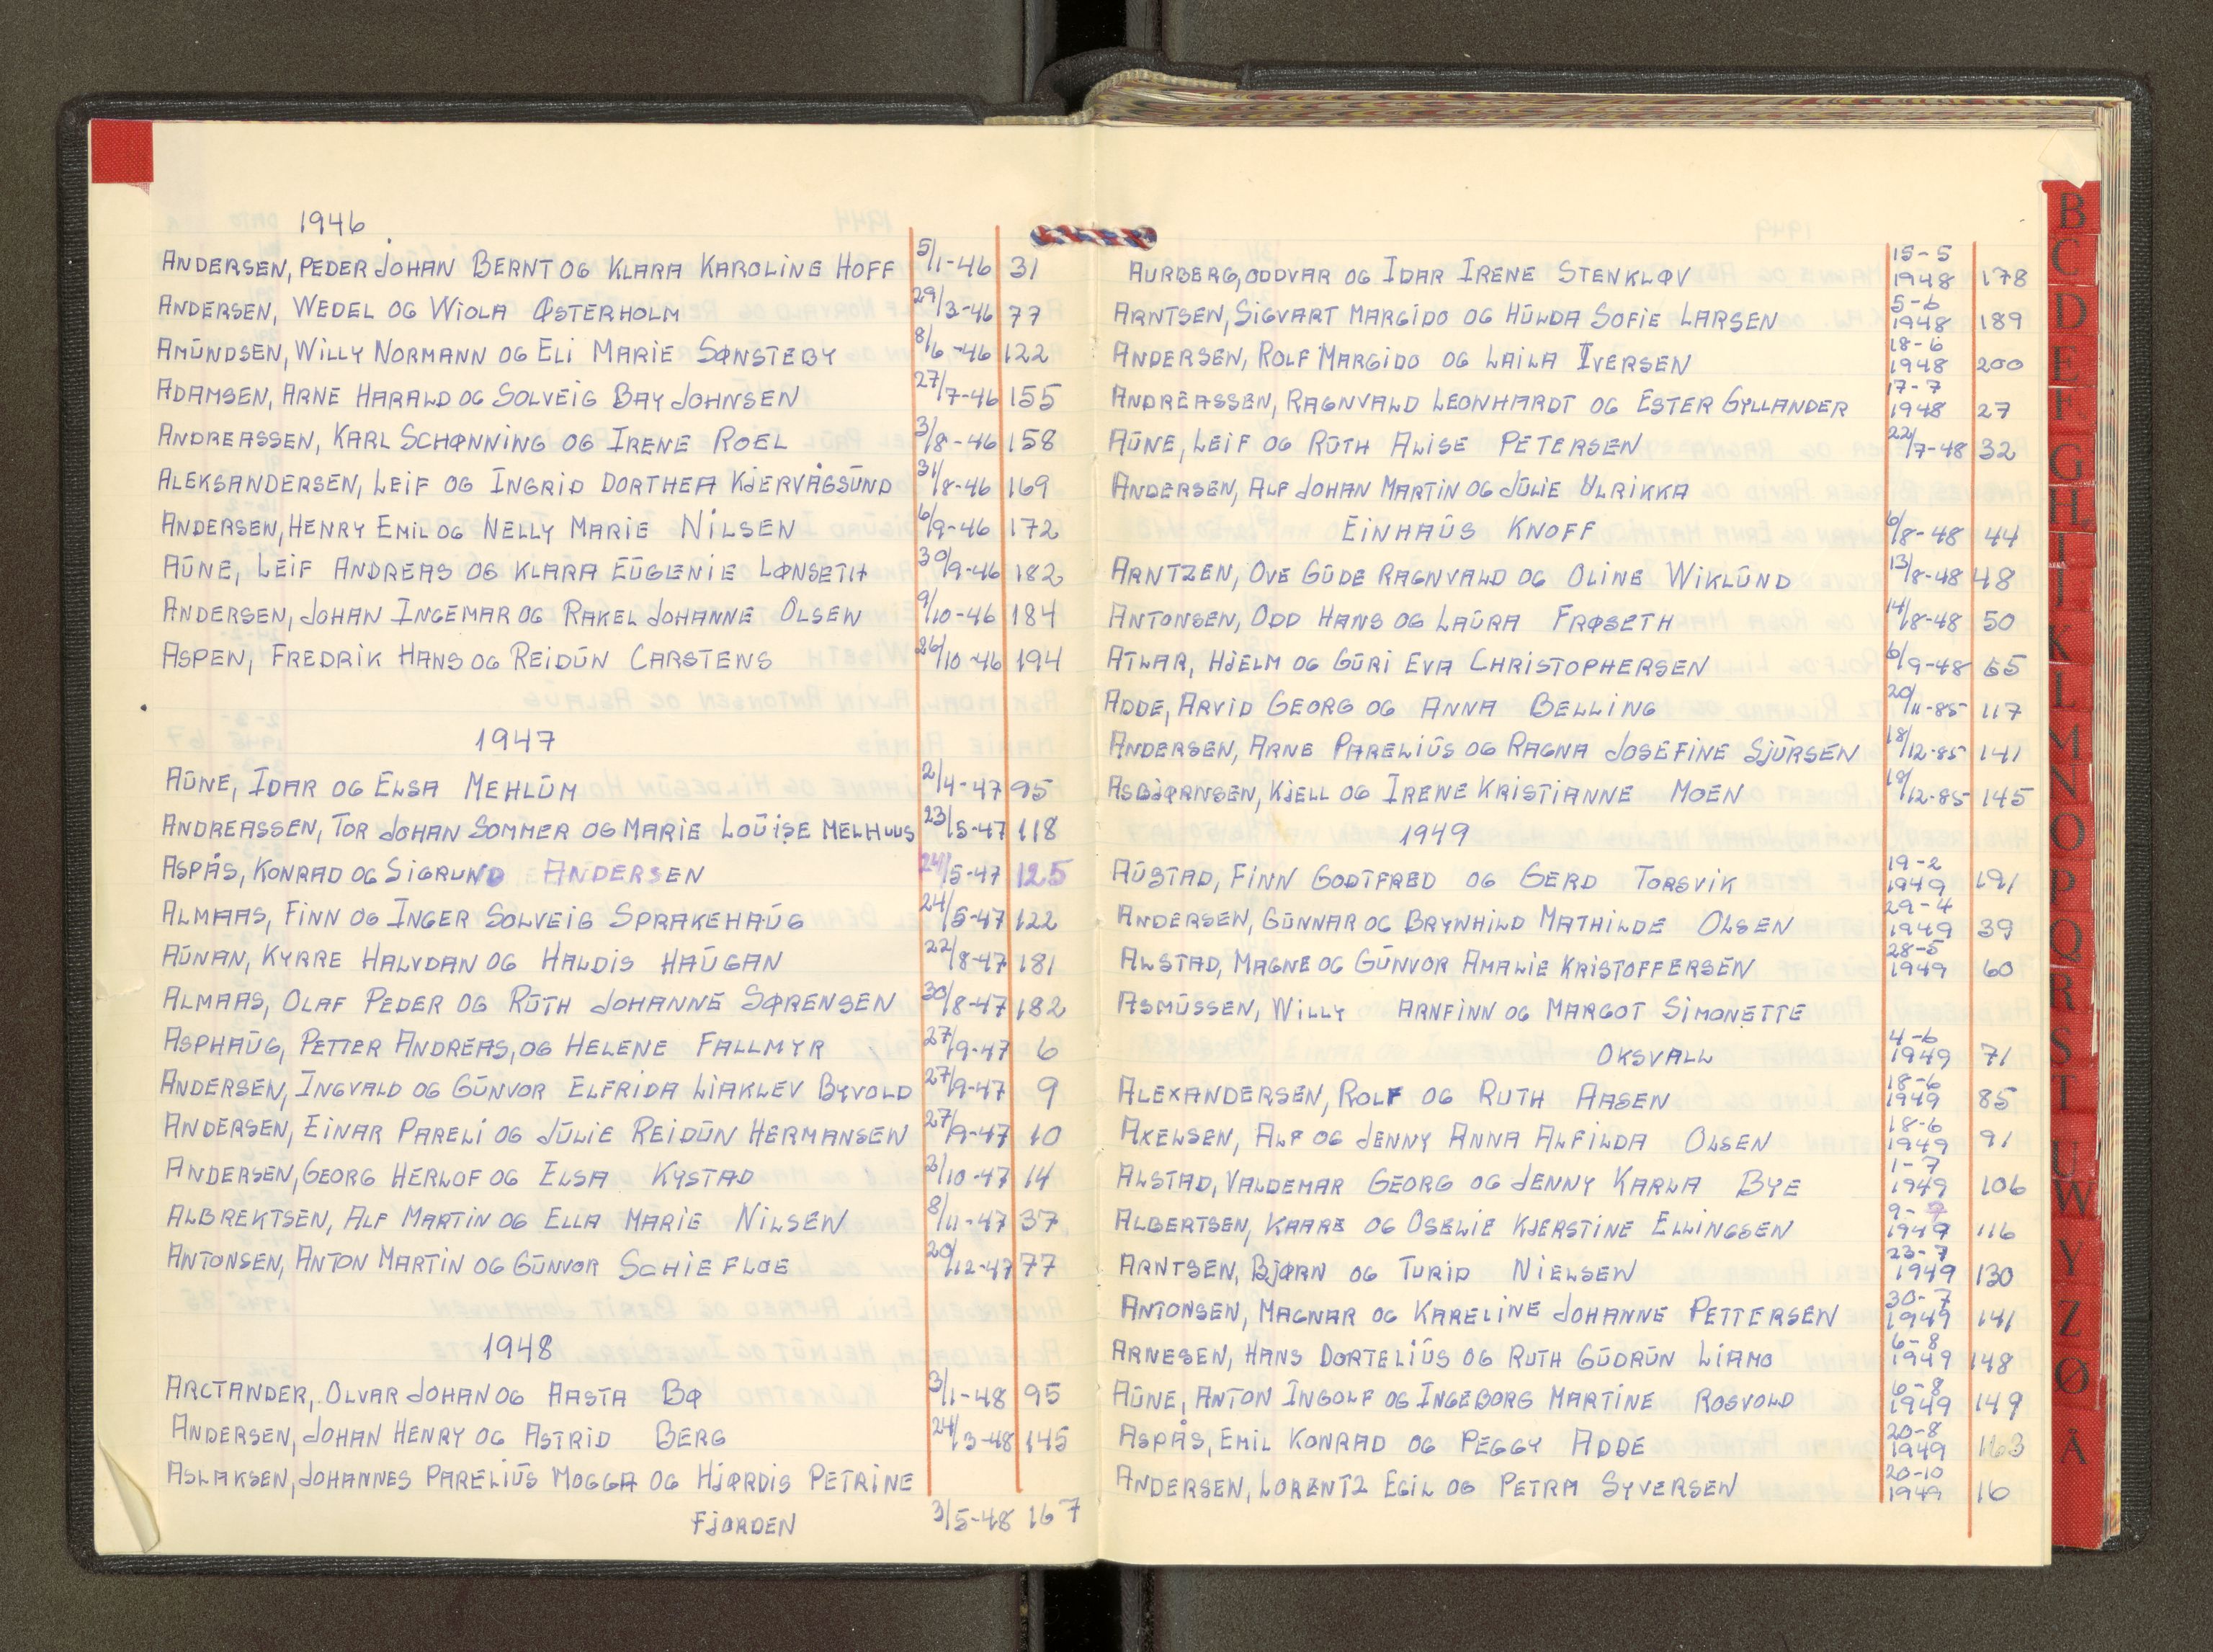 1946
ANDERSEN, PEDER JOHAN BERNT OG KLARA KAROLINE HOFF 5/1-46 31
ANDERSEN, WEDEL OG WIOLA ØSTERHOLM 29/3-46 77
AMŪNDSEN, WILLY NORMANN OG ELI MARIE SØNSTEBY 8/6-46 122
ADAMSEN, ARNE HARALD OG SOLVEIG BAY JOHNSEN 27/7-46 155
ANDREASSEN, KARL SCHØNNING OG IRENE ROEL 3/8-46 158
ALEKSANDERSEN, LEIF OG INGRID DORTHEA KJERVÅGSŪND 31/8-46 169
ANDERSEN, HENRY EMIL OG NELLY MARIE NILSEN 6/9-46 172
AŪNE, LEIF ANDREAS OG KLARA EŪGENIE LØNSETH 30/9-46 182
ANDERSEN, JOHAN INGEMAR OG RAKEL JOHANNE OLSEN 9/10-46 184
ASPEN, FREDRIK HANS OG REIDŪN CARSTENS 26/10-46 194
1947
AŪNE, IDAR OG ELSA MEHLŪM 2/4-47 95
ANDREASSEN, TOR JOHAN SOMMER OG MARIE LOŪISE MELHUUS 23/5-47 118
ASPÅS, KONRAD OG SIGRUND ANDERSEN 24/5-47 125
ALMAAS, FINN OG INGER SOLVEIG SPRAKEHAŪG 24/5-47 122
AŪNAN, KYRRE HALVDAN OG HALDIS HAŪGAN 22/8-47 181
ALMAAS, OLAF PEDER OG RŪTH JOHANNE SØRENSEN 30/8-47 182
ASPHAŪG, PETTER ANDREAS, OG HELENE FALLMYR 27/9-47 6
ANDERSEN, INGVALD OG GŪNVOR ELFRIDA LIAKLEV BYVOLD 27/9-47 9
ANDERSEN, EINAR PARELI OG JŪLIE REIDŪN HERMANSEN 27/9-47 10
ANDERSEN, GEORG HERLOF OG ELSA KYSTAD 2/10-47 14
ALBREKTSEN, ALF MARTIN OG ELLA MARIE NILSEN 8/11-47 37
ANTONSEN, ANTON MARTIN OG GŪNVOR SCHIEFLOE 20/12-47 77
1948
ARCTANDER, OLVAR JOHAN OG AASTA BØ 3/1-48 95
ANDERSEN, JOHAN HENRY OG ASTRID BERG 24/3-48 145
ASLAKSEN, JOHANNES PARELIŪS MOGGA OG HJØRDIS PETRINE
FJORDEN 3/5-48 167
AURBERG, ODDVAR OG IDAR IRENE STENKLØV 15-5 1948 178
ARNTSEN, SIGVART MARGIDO OG HŪLDA SOFIE LARSEN 5-6 1948 189
ANDERSEN, ROLF MARGIDO OG LAILA IVERSEN 18-6 1948 200
ANDREASSEN, RAGNVALD LEONHARDT OG ESTER GYLLANDER 17-7 1948 27
AŪNE, LEIF OG RŪTH ALISE PETERSEN 22/7-48 32
ANDERSEN, ALF JOHAN MARTIN OG JŪLIE ULRIKKA
EINHAŪS KNOFF 6/8-48 44
ARNTZEN, OVE GŪDE RAGNVALD OG OLINE WIKLŪND 13/8-48 48
ANTONSEN, ODD HANS OG LAŪRA FRØSETH 14/8-48 50
ATLAR, HJELM OG GŪRI EVA CHRISTOPHERSEN 6/9-48 65
ADDE, ARVID GEORG OG ANNA BELLING 20/11-85 117
ANDERSEN, ARNE PARELIŪS OG RAGNA JOSEFINE SJŪRSEN 18/12-85 141
ASBJØRNSEN, KJELL OG IRENE KRISTIANNE MOEN 18/12-85 145
1949
AŪSTAD, FINN GODTFRED OG GERD TORSVIK 19-2 1949 191
ANDERSEN, GŪNNAR OG BRYNHILD MATHILDE OLSEN 29-4 1949 39
ALSTAD, MAGNE OG GŪNVOR AMALIE KRISTOFFERSEN 28-5 1949 60
ASMŪSSEN, WILLY ARNFINN OG MARGOT SIMONETTE
OKSVALL 4-6 1949 71
ALEXANDERSEN, ROLF OG RUTH AASEN 18-6 1949 85
AXELSEN, ALF OG JENNY ANNA ALFILDA OLSEN 18-6 1949 91
ALSTAD, VALDEMAR GEORG OG JENNY KARLA BYE 1-7 1949 106
ALBERTSEN, KAARE OG OSELIE KJERSTINE ELLINGSEN 9- 1949 116
ARNTSEN, BJØRN OG TURID NIELSEN 23-7 1949 130
ANTONSEN, MAGNAR OG KARELINE JOHANNE PETTERSEN 30-7 1949 141
ARNESEN, HANS DORTELIŪS OG RUTH GŪDRŪN LIAMO 6-8 1949 148
AŪNE, ANTON INGOLF OG INGEBORG MARTINE ROSVOLD 6-8 1949 149
ASPÅS, EMIL KONRAD OG PEGGY ADDE 20-8 1949 163
ANDERSEN, LORENTZ EGIL OG PETRA SYVERSEN 20-10 1949 16
B
C
D
E
F
G
H
I
J
K
L
M
N
O
P
Q
R
S
T
U
W
Y
Z
Ø
Å